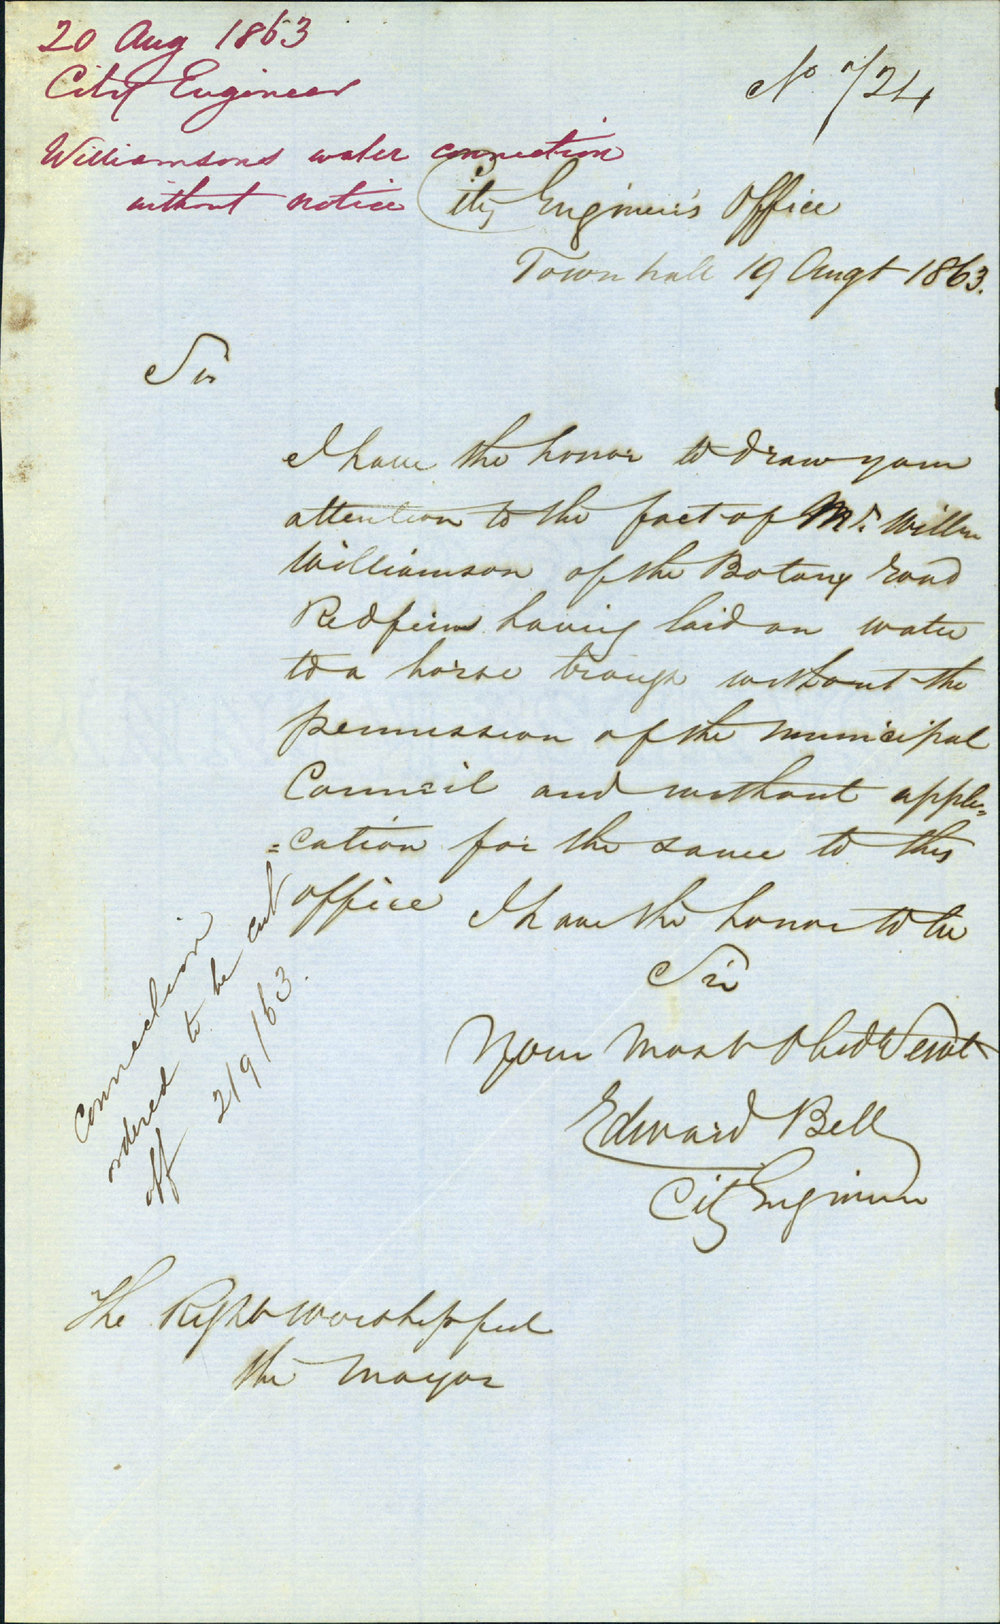 20 Aug 1863
City Engineer
Williamsons water connection
without notice
No 724
City Engineer's Office
Town hall 19 Augt 1863.
Sir
I have the honor to draw your
attention to the fact of Mr. Willm
Williamson of the Botany road
Redfern having laid on water
to a horse trough without the
permission of the Municipal
Council and without appli=
=cation for the same to this
office I have the honor to be
Sir
Your most Obedt Servt
Edward Bell
City Engineer
connection
ordered to be cut
off 2/9/63.
The Right worshipful
the Mayor